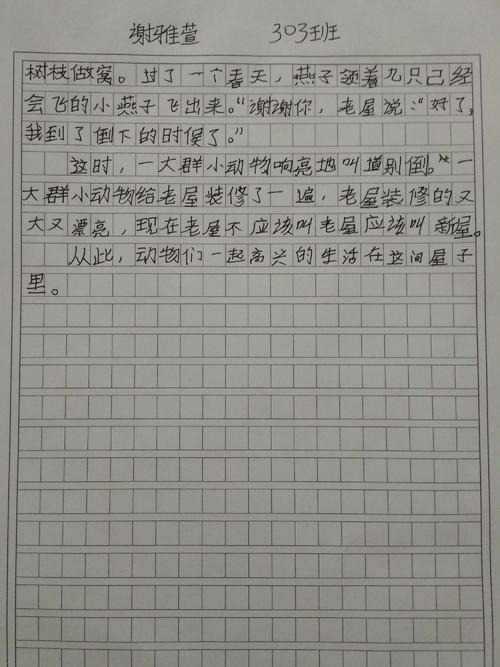 谢雅萱 303班
树枝做窝。过了一个春天，燕子领着九只已经
会飞的小燕子飞出来。“谢谢你，老屋说：“好了，
我到了倒下的时候了。”
这时，一大群小动物响亮地叫道别倒。“一
大群小动物给老屋装修了一遍，老屋装修的又
大又漂亮，现在老屋不应该叫老屋应该叫新屋。
从此，动物们一起高兴的生活在这间屋子
里。